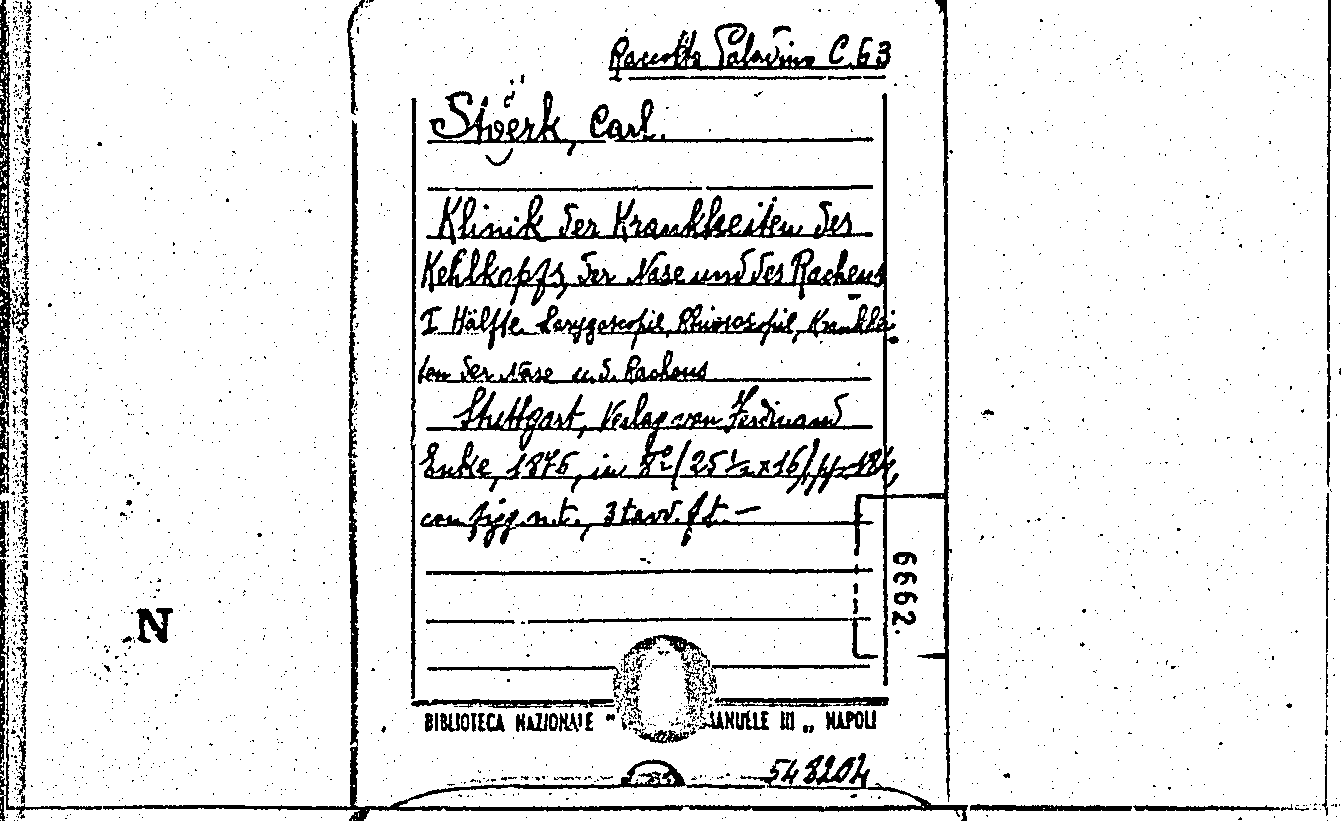 Raccolta Paladino C. 63
Stoerk, Carl.
Klinik der Krankheiten des
Kehlkopfs, der Nase und des Rachens
I Hälfte. Laryngoscopie, Rhinoscopie, Krankhei
ten der Nase u. d. Rachens
Stuttgart, Verlag von Ferdinand
Enke, 1876, in 8º (25½ x 16) pp.
con figg. n. t., 3 tavv. f. t. —
6662.
N
BIBLIOTECA NAZIONALE " ANUELE III „ NAPOLI
548204